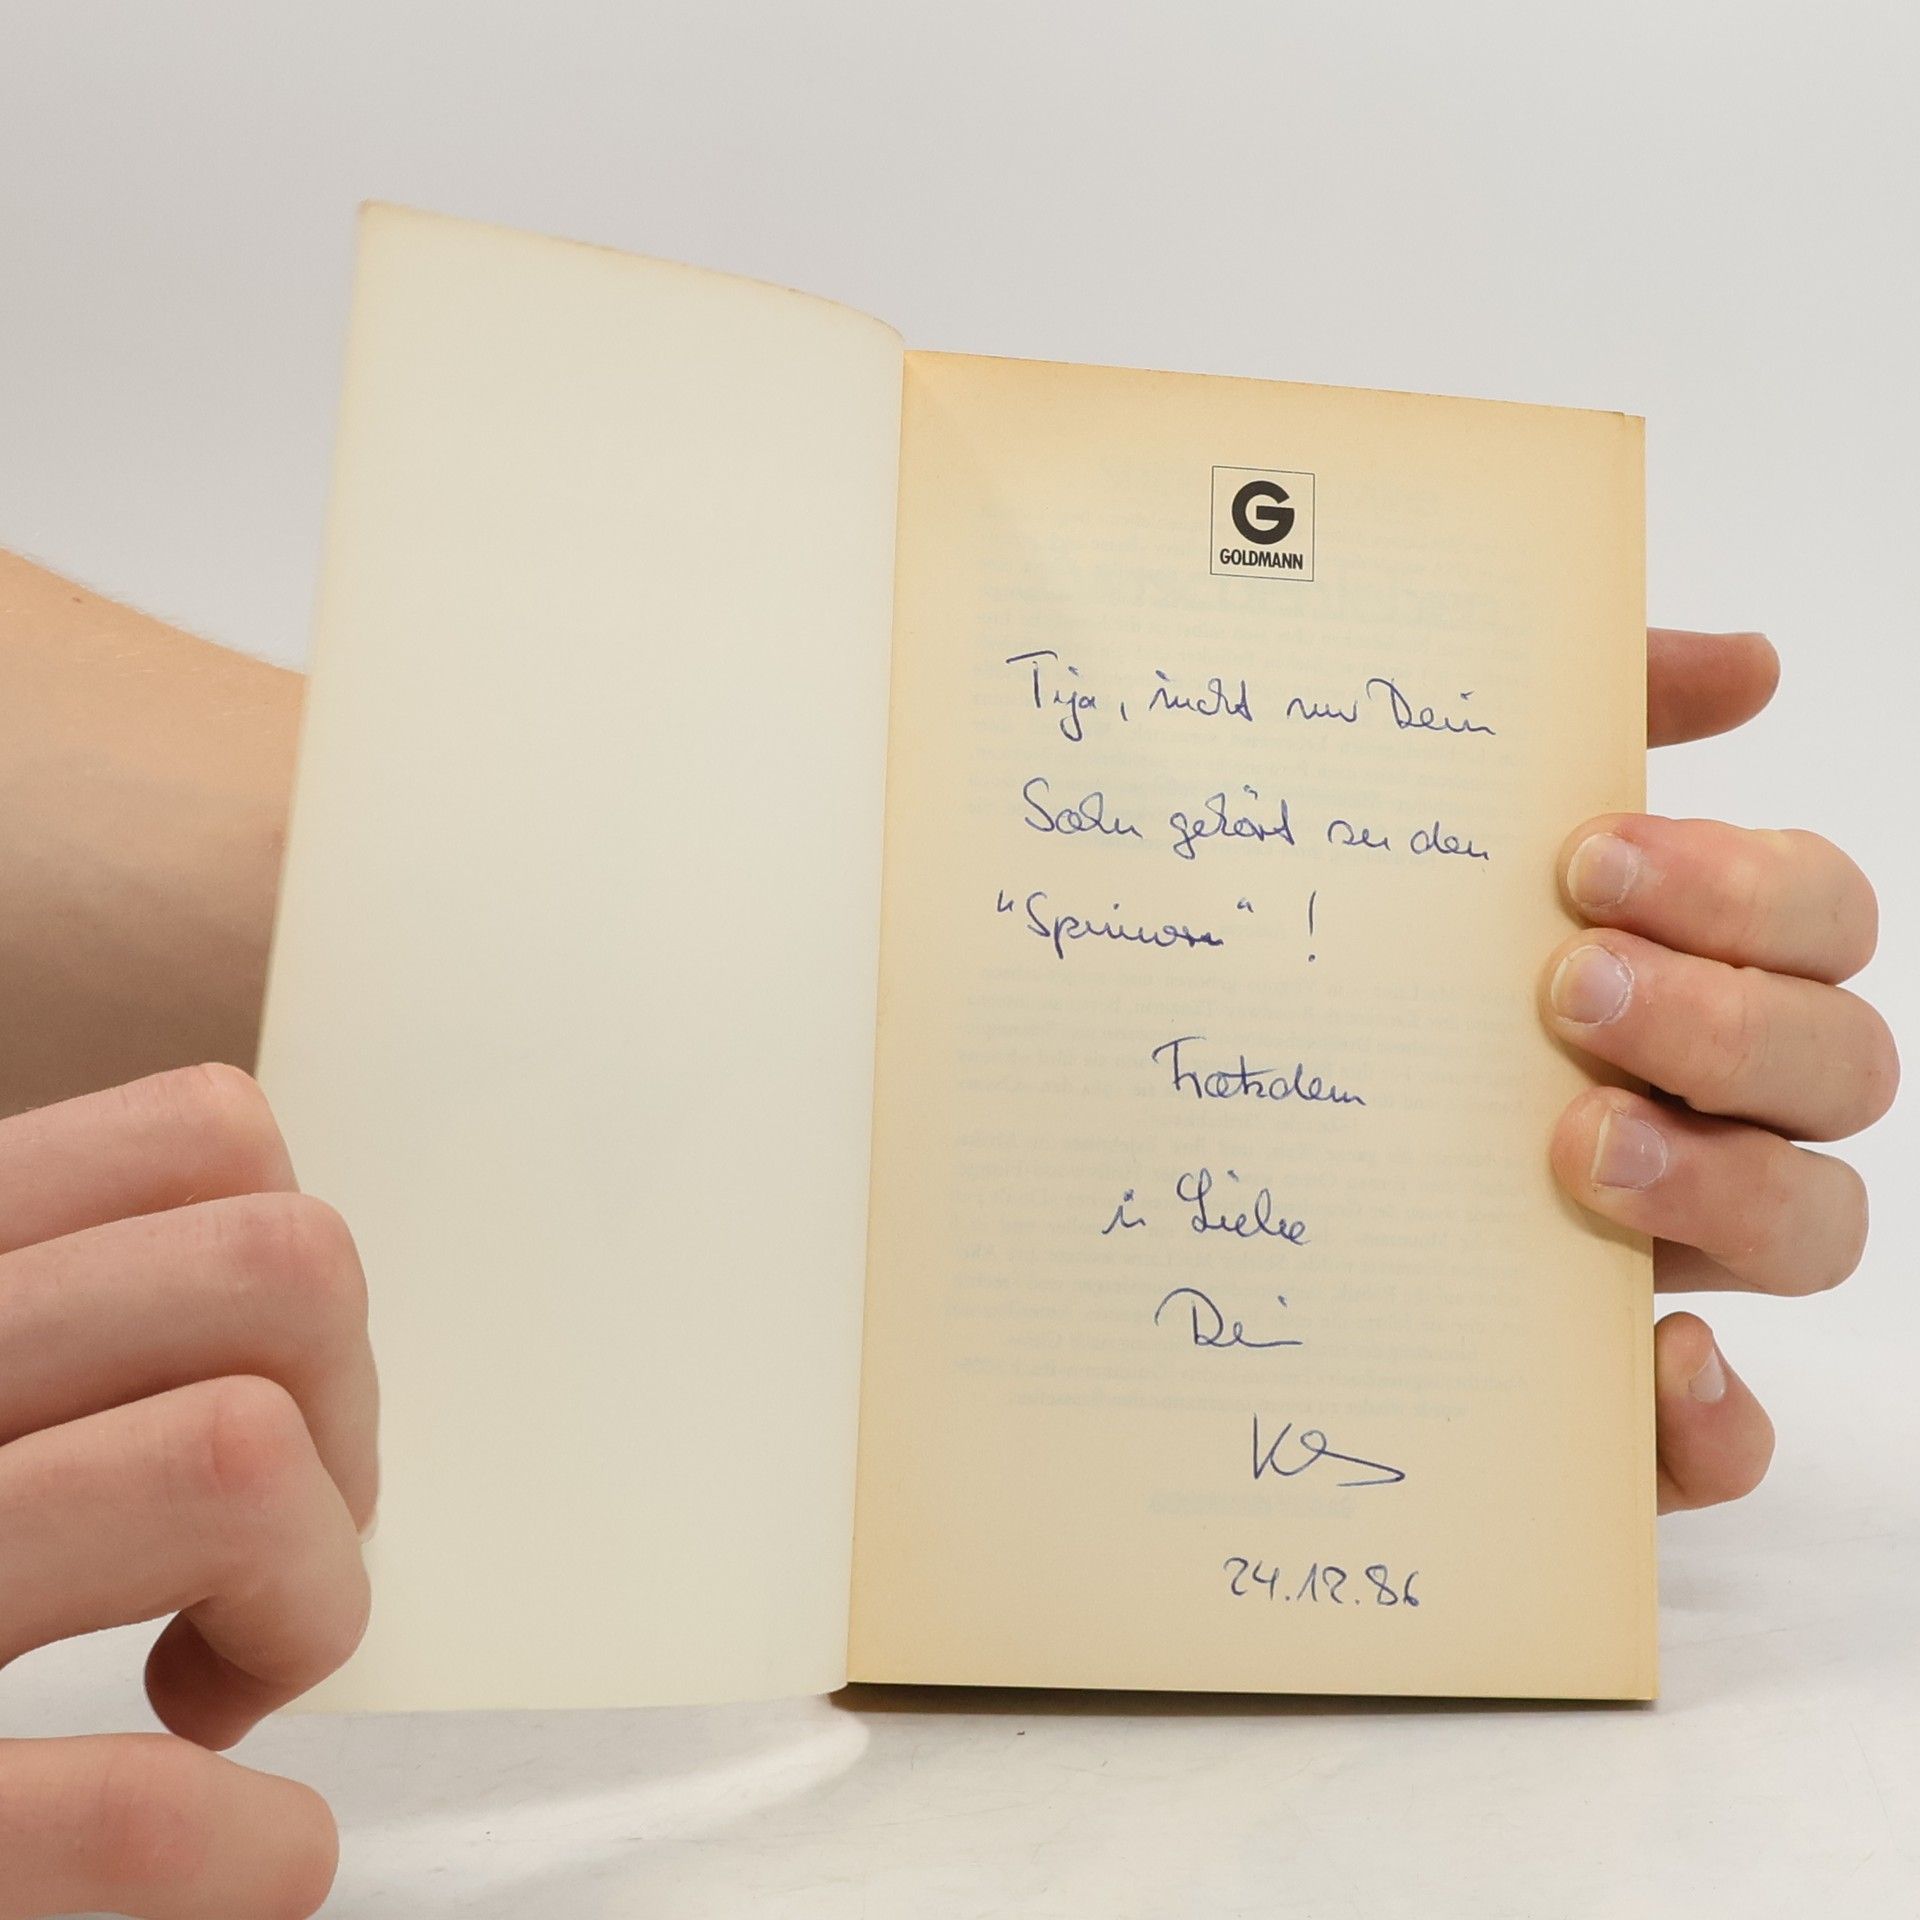 G
GOLDMANN
Tja, nicht nur Dein
Sohn gehört zu den
"Spinnern" !
Trotzdem
in Liebe
Dein
24.12.86